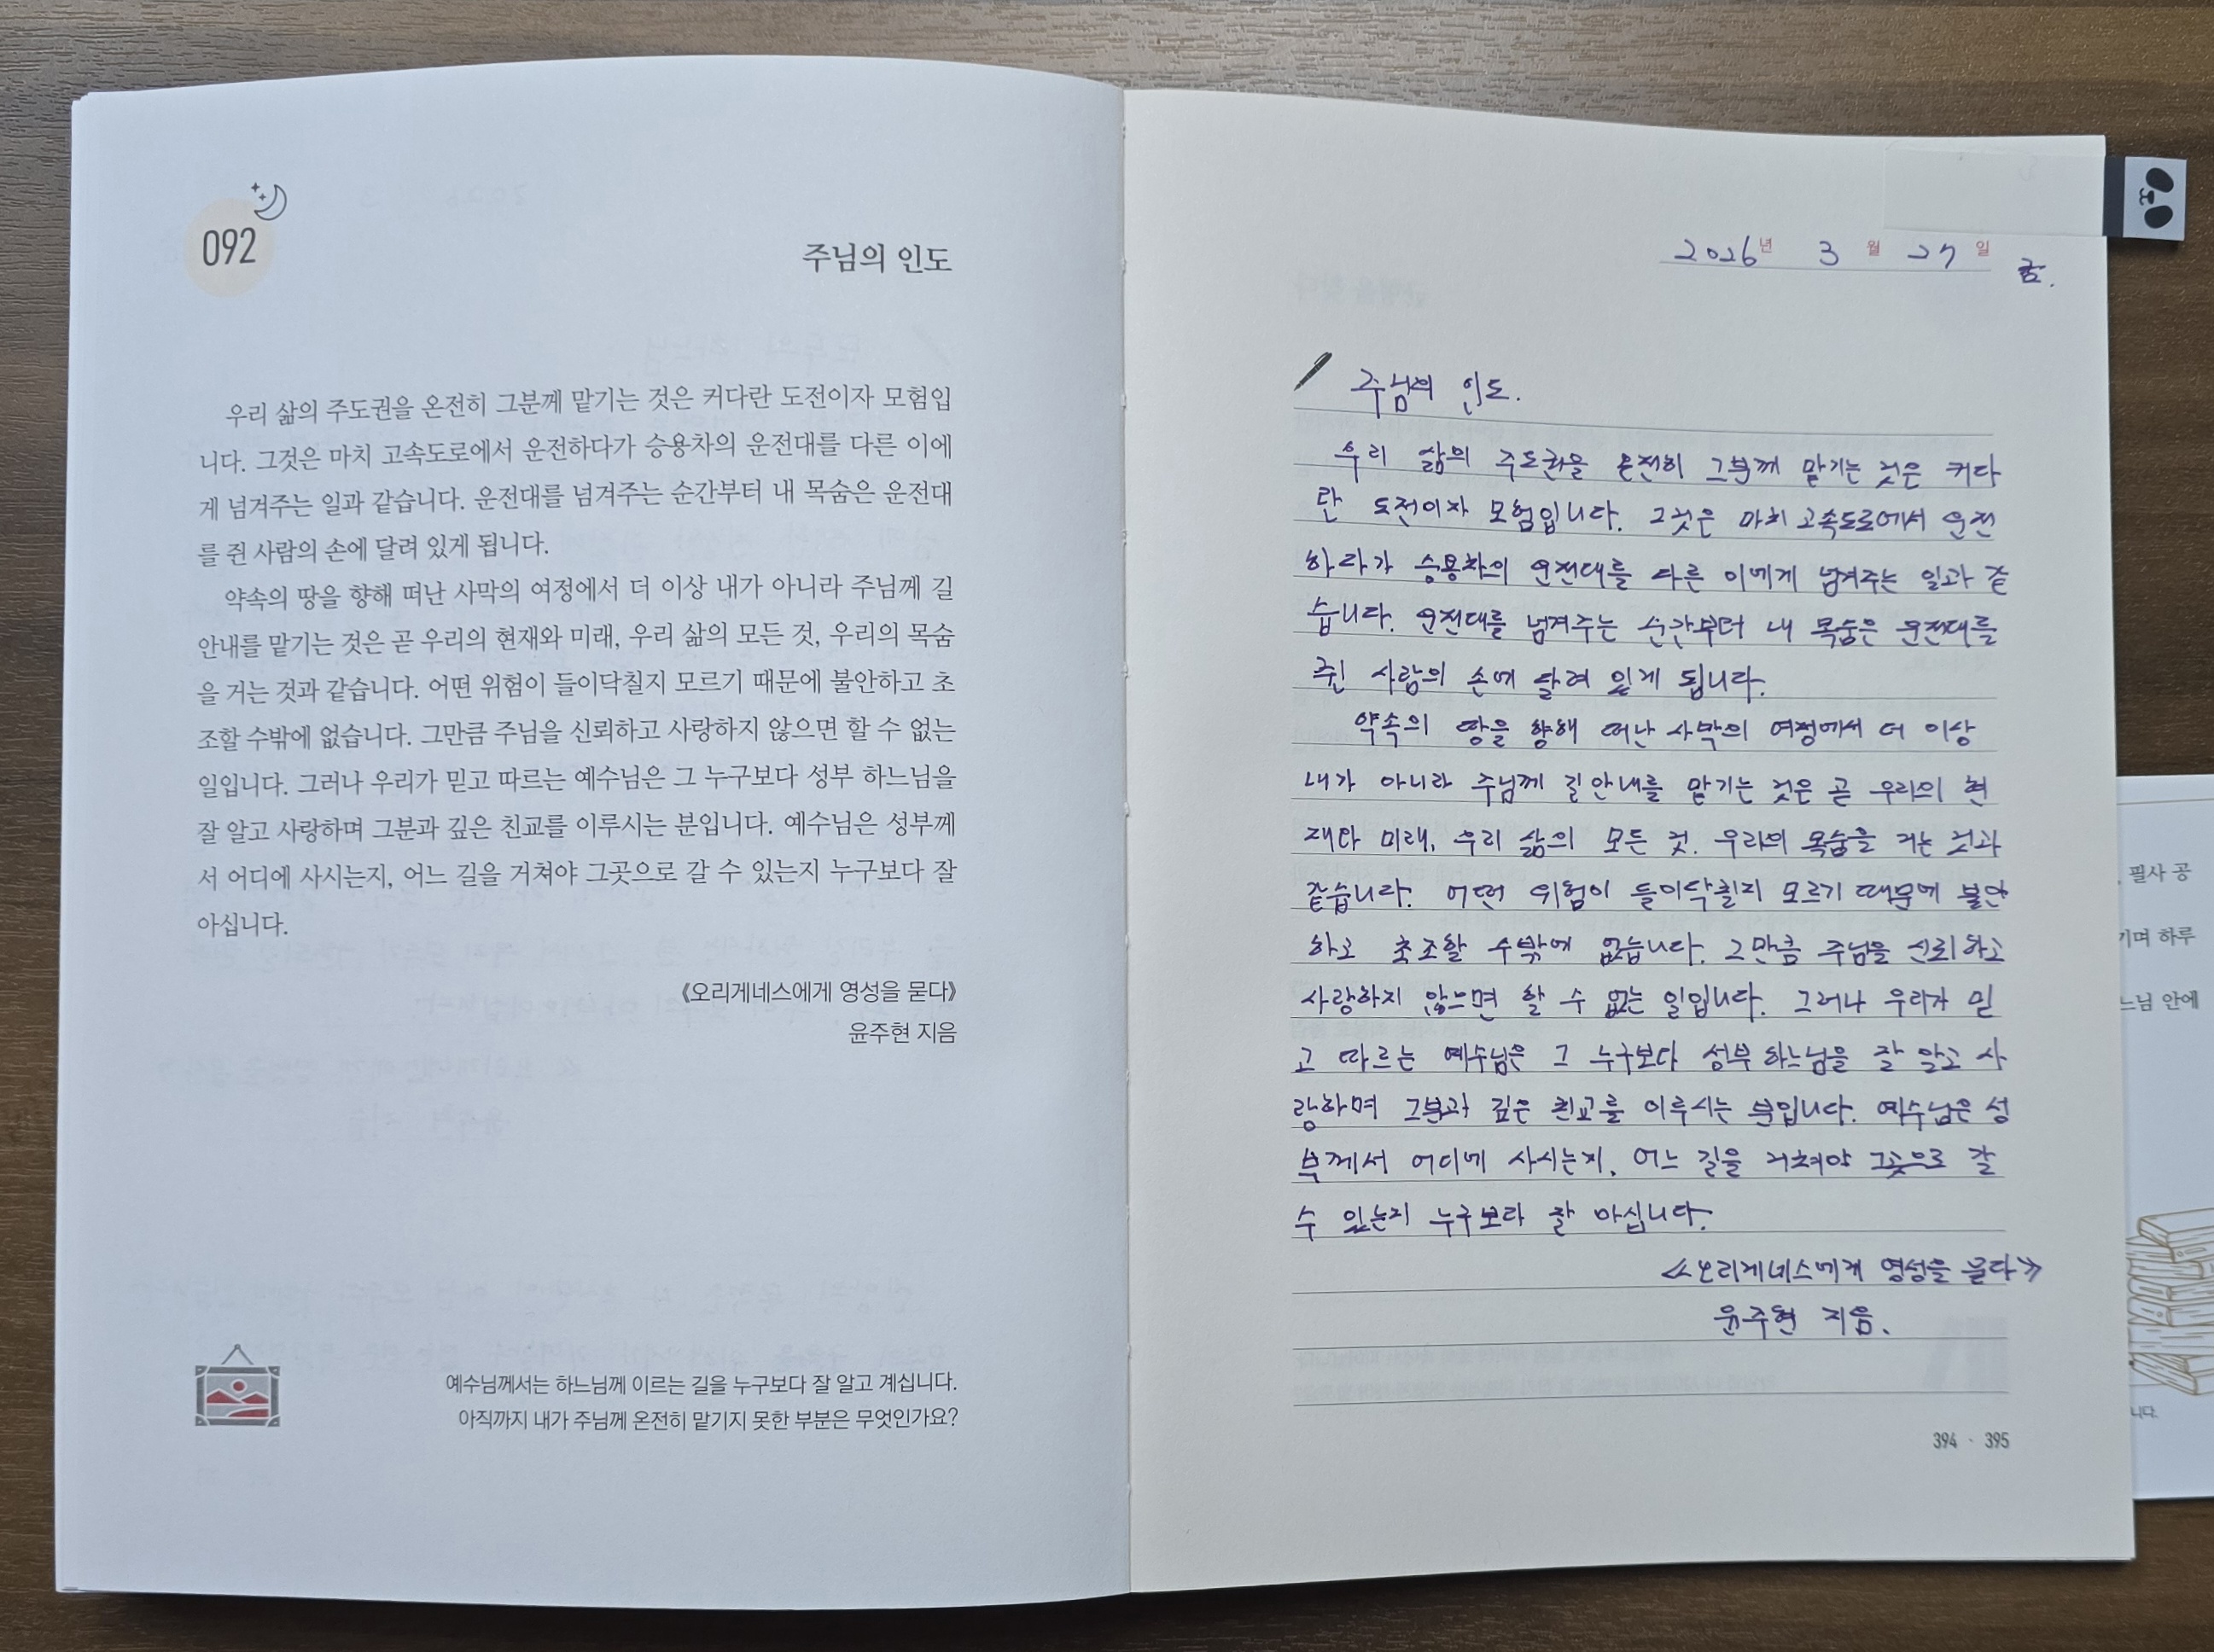 092
주님의 인도
우리 삶의 주도권을 온전히 그분께 맡기는 것은 커다란 도전이자 모험입
니다. 그것은 마치 고속도로에서 운전하다가 승용차의 운전대를 다른 이에
게 넘겨주는 일과 같습니다. 운전대를 넘겨주는 순간부터 내 목숨은 운전대
를 쥔 사람의 손에 달려 있게 됩니다.
약속의 땅을 향해 떠난 사막의 여정에서 더 이상 내가 아니라 주님께 길
안내를 맡기는 것은 곧 우리의 현재와 미래, 우리 삶의 모든 것, 우리의 목숨
을 거는 것과 같습니다. 어떤 위험이 들이닥칠지 모르기 때문에 불안하고 초
조할 수밖에 없습니다. 그만큼 주님을 신뢰하고 사랑하지 않으면 할 수 없는
일입니다. 그러나 우리가 믿고 따르는 예수님은 그 누구보다 성부 하느님을
잘 알고 사랑하며 그분과 깊은 친교를 이루시는 분입니다. 예수님은 성부께
서 어디에 사시는지, 어느 길을 거쳐야 그곳으로 갈 수 있는지 누구보다 잘
아십니다.
《오리게네스에게 영성을 묻다》
윤주현 지음
예수님께서는 하느님께 이르는 길을 누구보다 잘 알고 계십니다.
아직까지 내가 주님께 온전히 맡기지 못한 부분은 무엇인가요?
2026년 3월 27일 금.
주님의 인도.
우리 삶의 주도권을 온전히 그분께 맡기는 것은 커다
란 도전이자 모험입니다. 그것은 마치 고속도로에서 운전
하다가 승용차의 운전대를 다른 이에게 넘겨주는 일과 같
습니다. 운전대를 넘겨주는 순간부터 내 목숨은 운전대를
쥔 사람의 손에 달려 있게 됩니다.
약속의 땅을 향해 떠난 사막의 여정에서 더 이상
내가 아니라 주님께 길안내를 맡기는 것은 곧 우리의 현
재와 미래, 우리 삶의 모든 것. 우리의 목숨을 거는 것과
같습니다. 어떤 위험이 들이닥칠지 모르기 때문에 불안
하고 초조할 수밖에 없습니다. 그만큼 주님을 신뢰하고
사랑하지 않으면 할 수 없는 일입니다. 그러나 우리가 믿
고 따르는 예수님은 그 누구보다 성부 하느님을 잘 알고 사
랑하며 그분과 깊은 친교를 이루시는 분입니다. 예수님은 성
부께서 어디에 사시는지, 어느 길을 거쳐야 그곳으로 갈
수 있는지 누구보다 잘 아십니다.
《오리게네스에게 영성을 묻다》
윤주현 지음.
394 · 395
필사 공
기며 하루
느님 안에
니다.